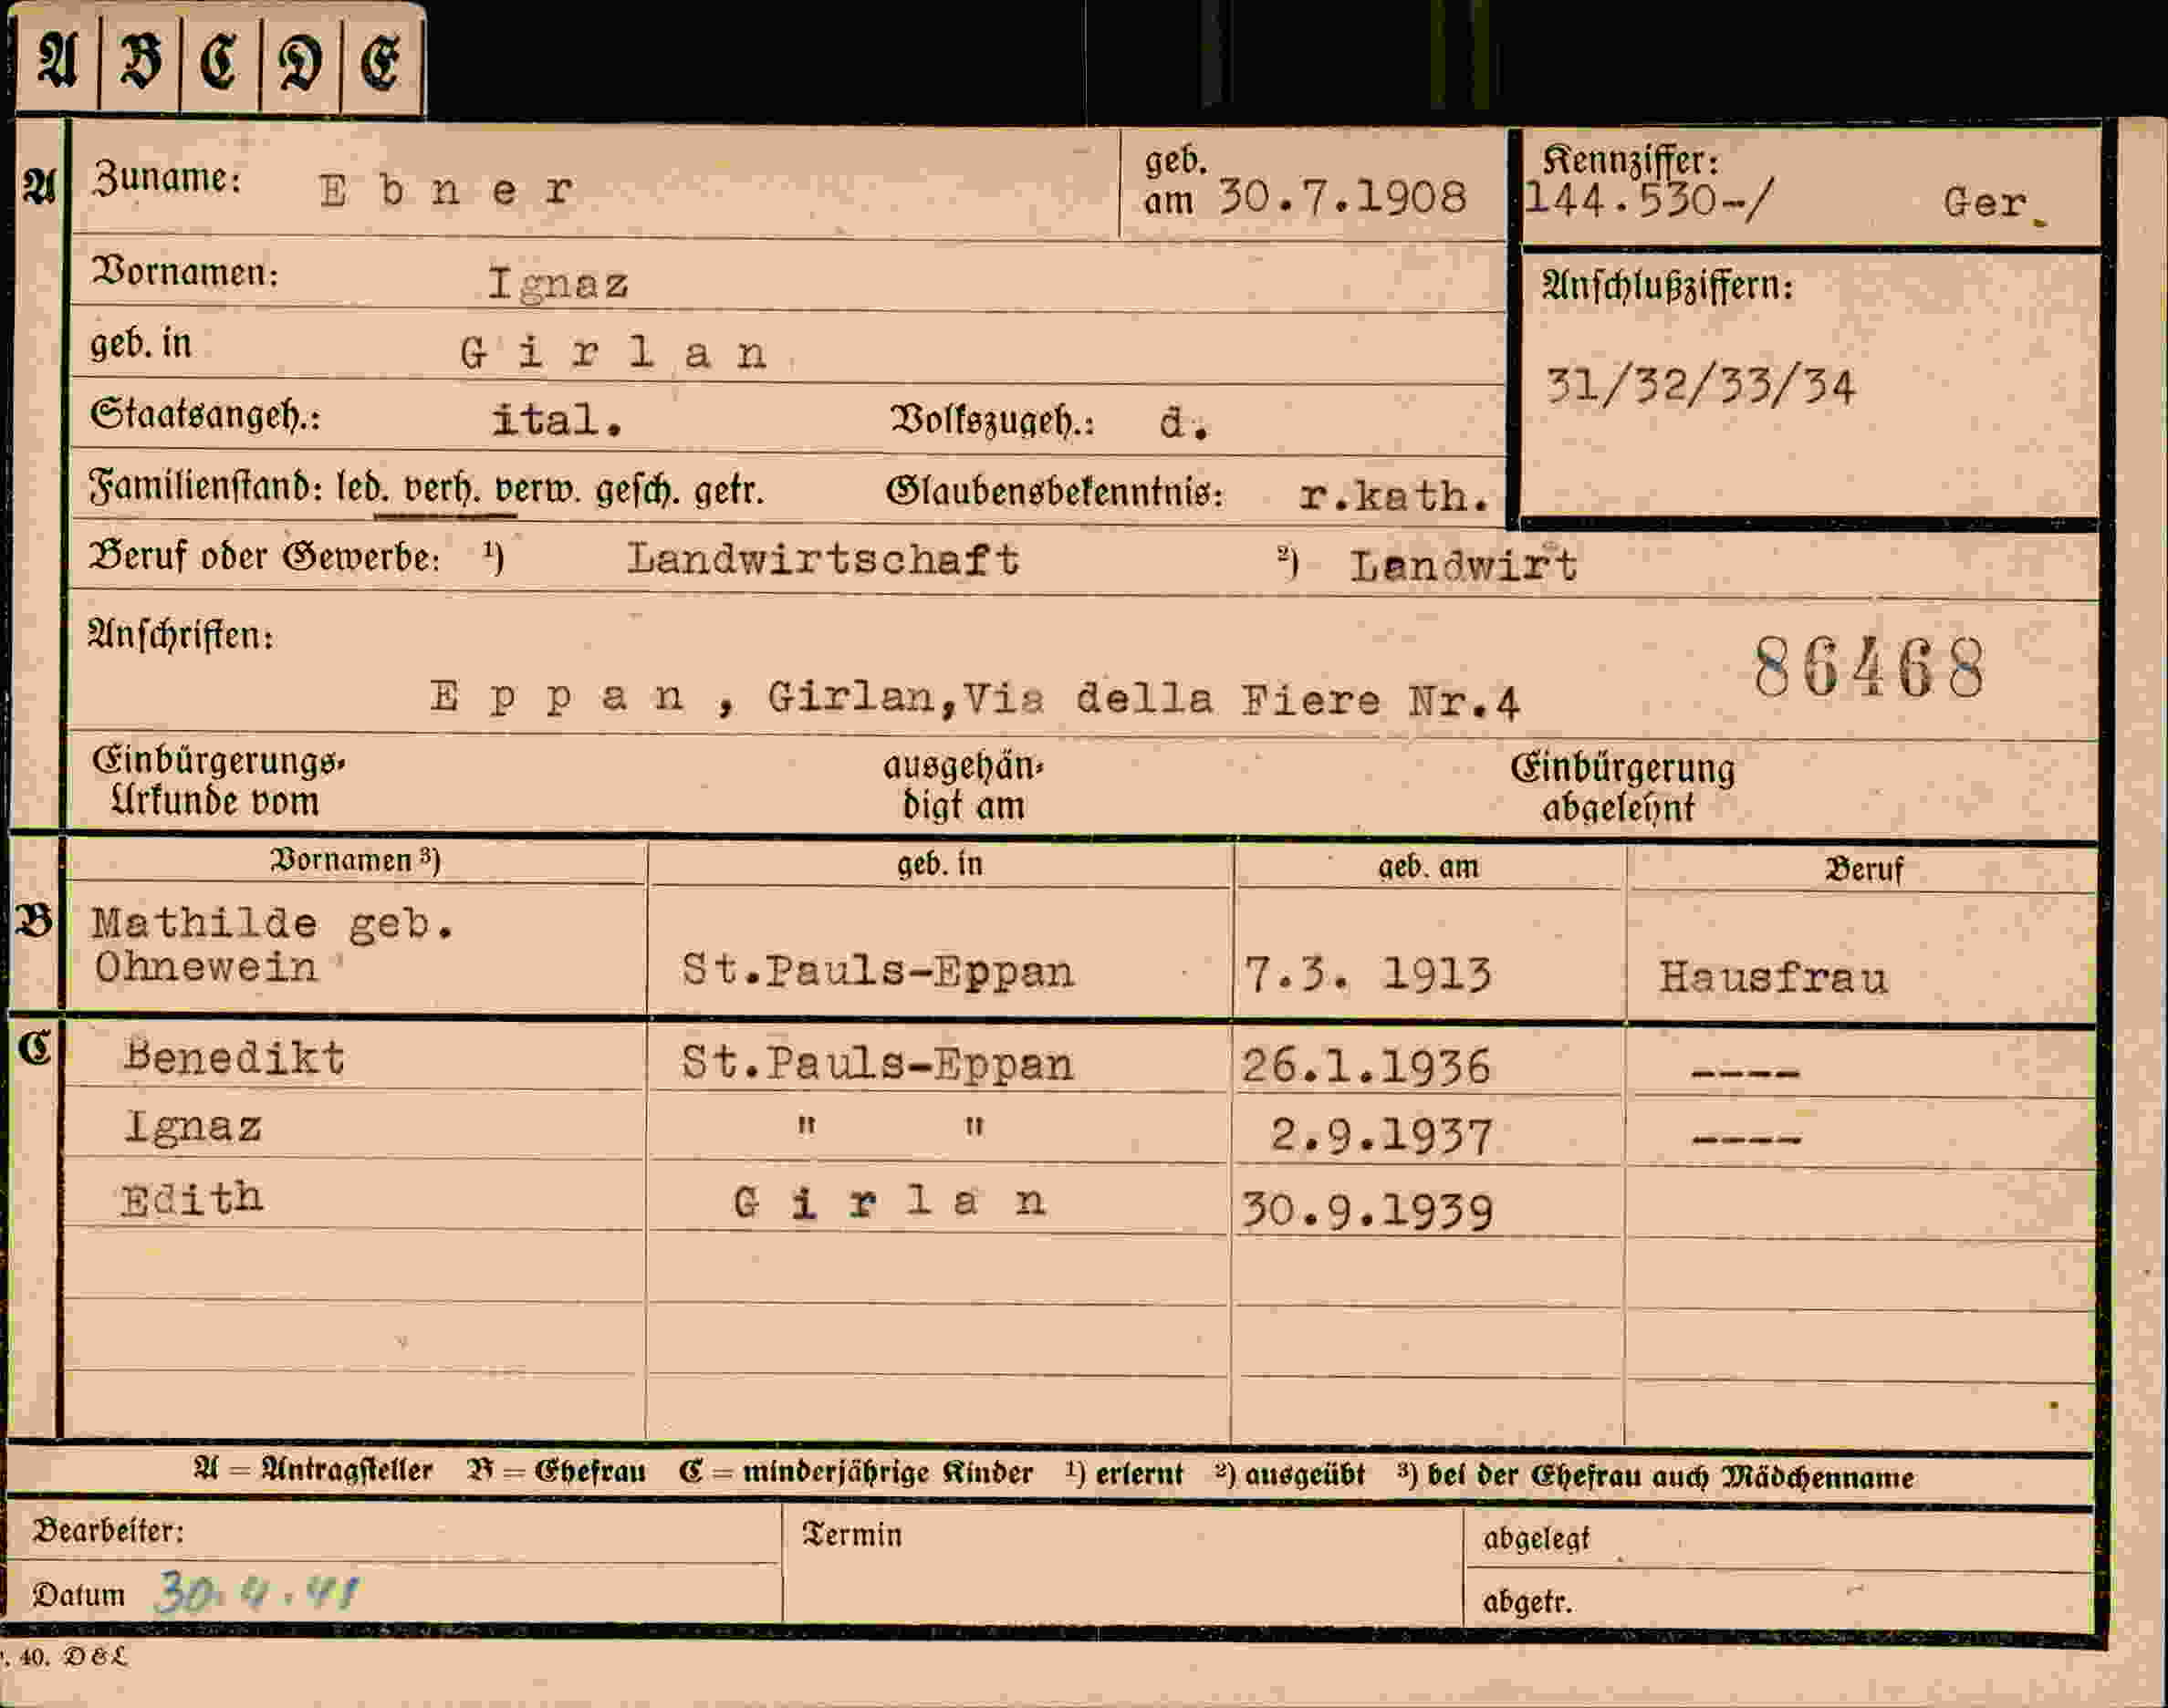 A B C D E
A Zuname: Ebner geb. am 30.7.1908 Kennziffer: 144.530-/ Ger.
Vornamen: Ignaz Anschlußziffern:
geb. in Girlan 31/32/33/34
Staatsangeh.: ital. Volkszugeh.: d.
Familienstand: led. verh. verw. gesch. getr. Glaubensbekenntnis: r.kath.
Beruf oder Gewerbe: ¹) Landwirtschaft ²) Landwirt
Anschriften: 86468
Eppan, Girlan,Via della Fiere Nr.4
Einbürgerungs- ausgehän- Einbürgerung
Urkunde vom digt am abgelehnt
Vornamen ³) geb. in geb. am Beruf
B Mathilde geb.
Ohnewein St.Pauls-Eppan 7.3. 1913 Hausfrau
C Benedikt St.Pauls-Eppan 26.1.1936 ----
Ignaz " " 2.9.1937 ----
Edith Girlan 30.9.1939
A = Antragsteller B = Ehefrau C = minderjährige Kinder ¹) erlernt ²) ausgeübt ³) bei der Ehefrau auch Mädchenname
Bearbeiter: Termin abgelegt
Datum 30.4.41 abgetr.
. 40. D & L